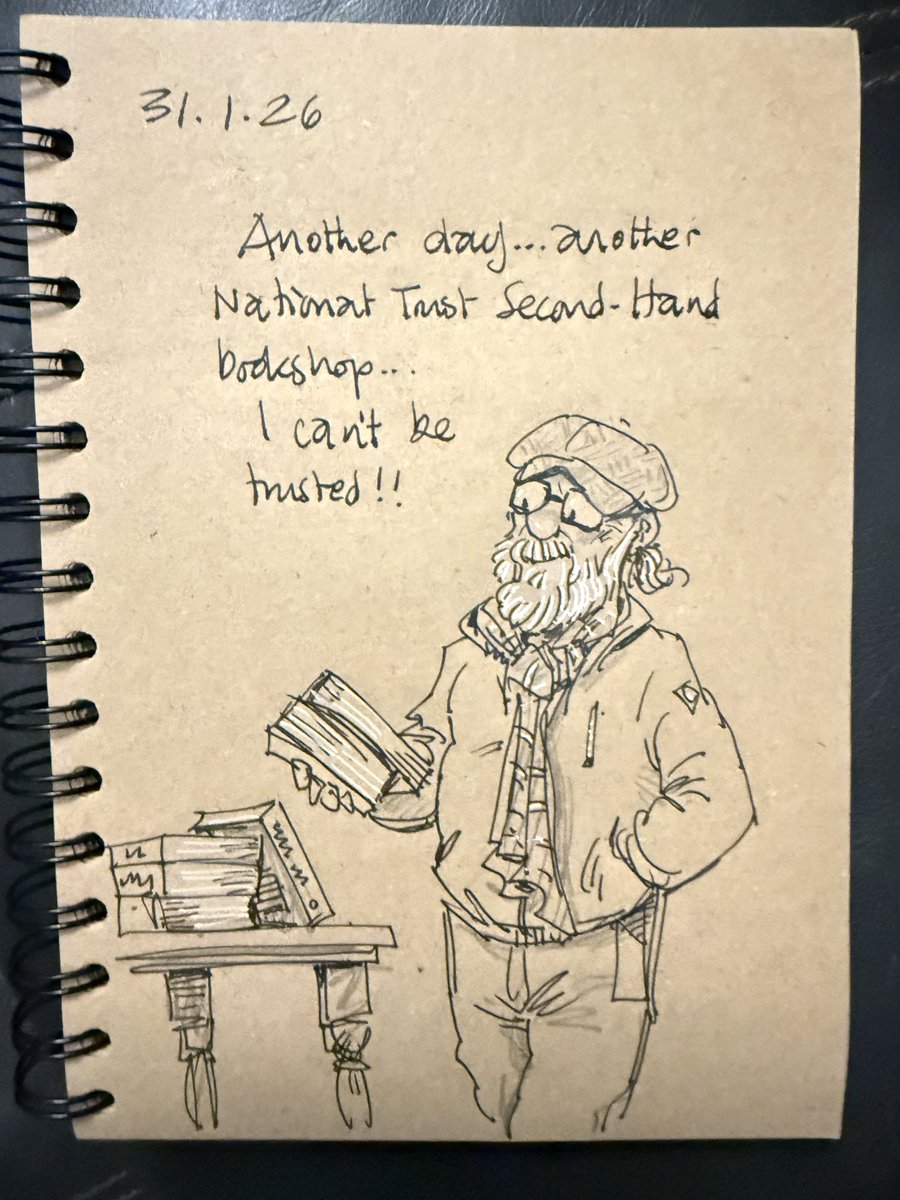 31.1.26
Another day...another
National Trust Second-Hand
bookshop...
I can't be
trusted!!